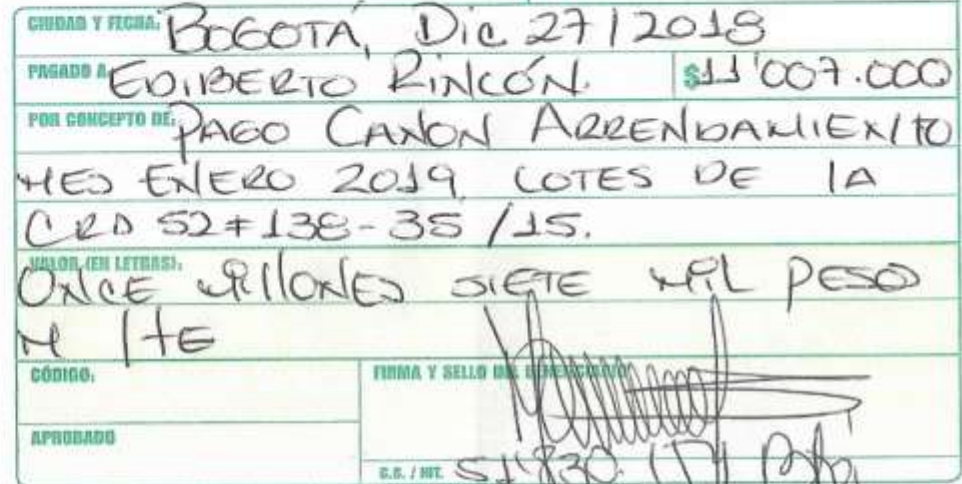 CIUDAD Y FECHA: BOGOTÁ, Dic 27/2018
PAGADO A: EDIBERTO RINCÓN. $11'007.000
POR CONCEPTO DE: PAGO CANON ARRENDAMIENTO
MES ENERO 2019 LOTES DE LA
CRA 52 # 138-35 /15.
VALOR (EN LETRAS):
ONCE MILLONES SIETE MIL PESOS
M/TE
CÓDIGO:
FIRMA Y SELLO DEL BENEFICIARIO
APROBADO
C.C. / NIT.